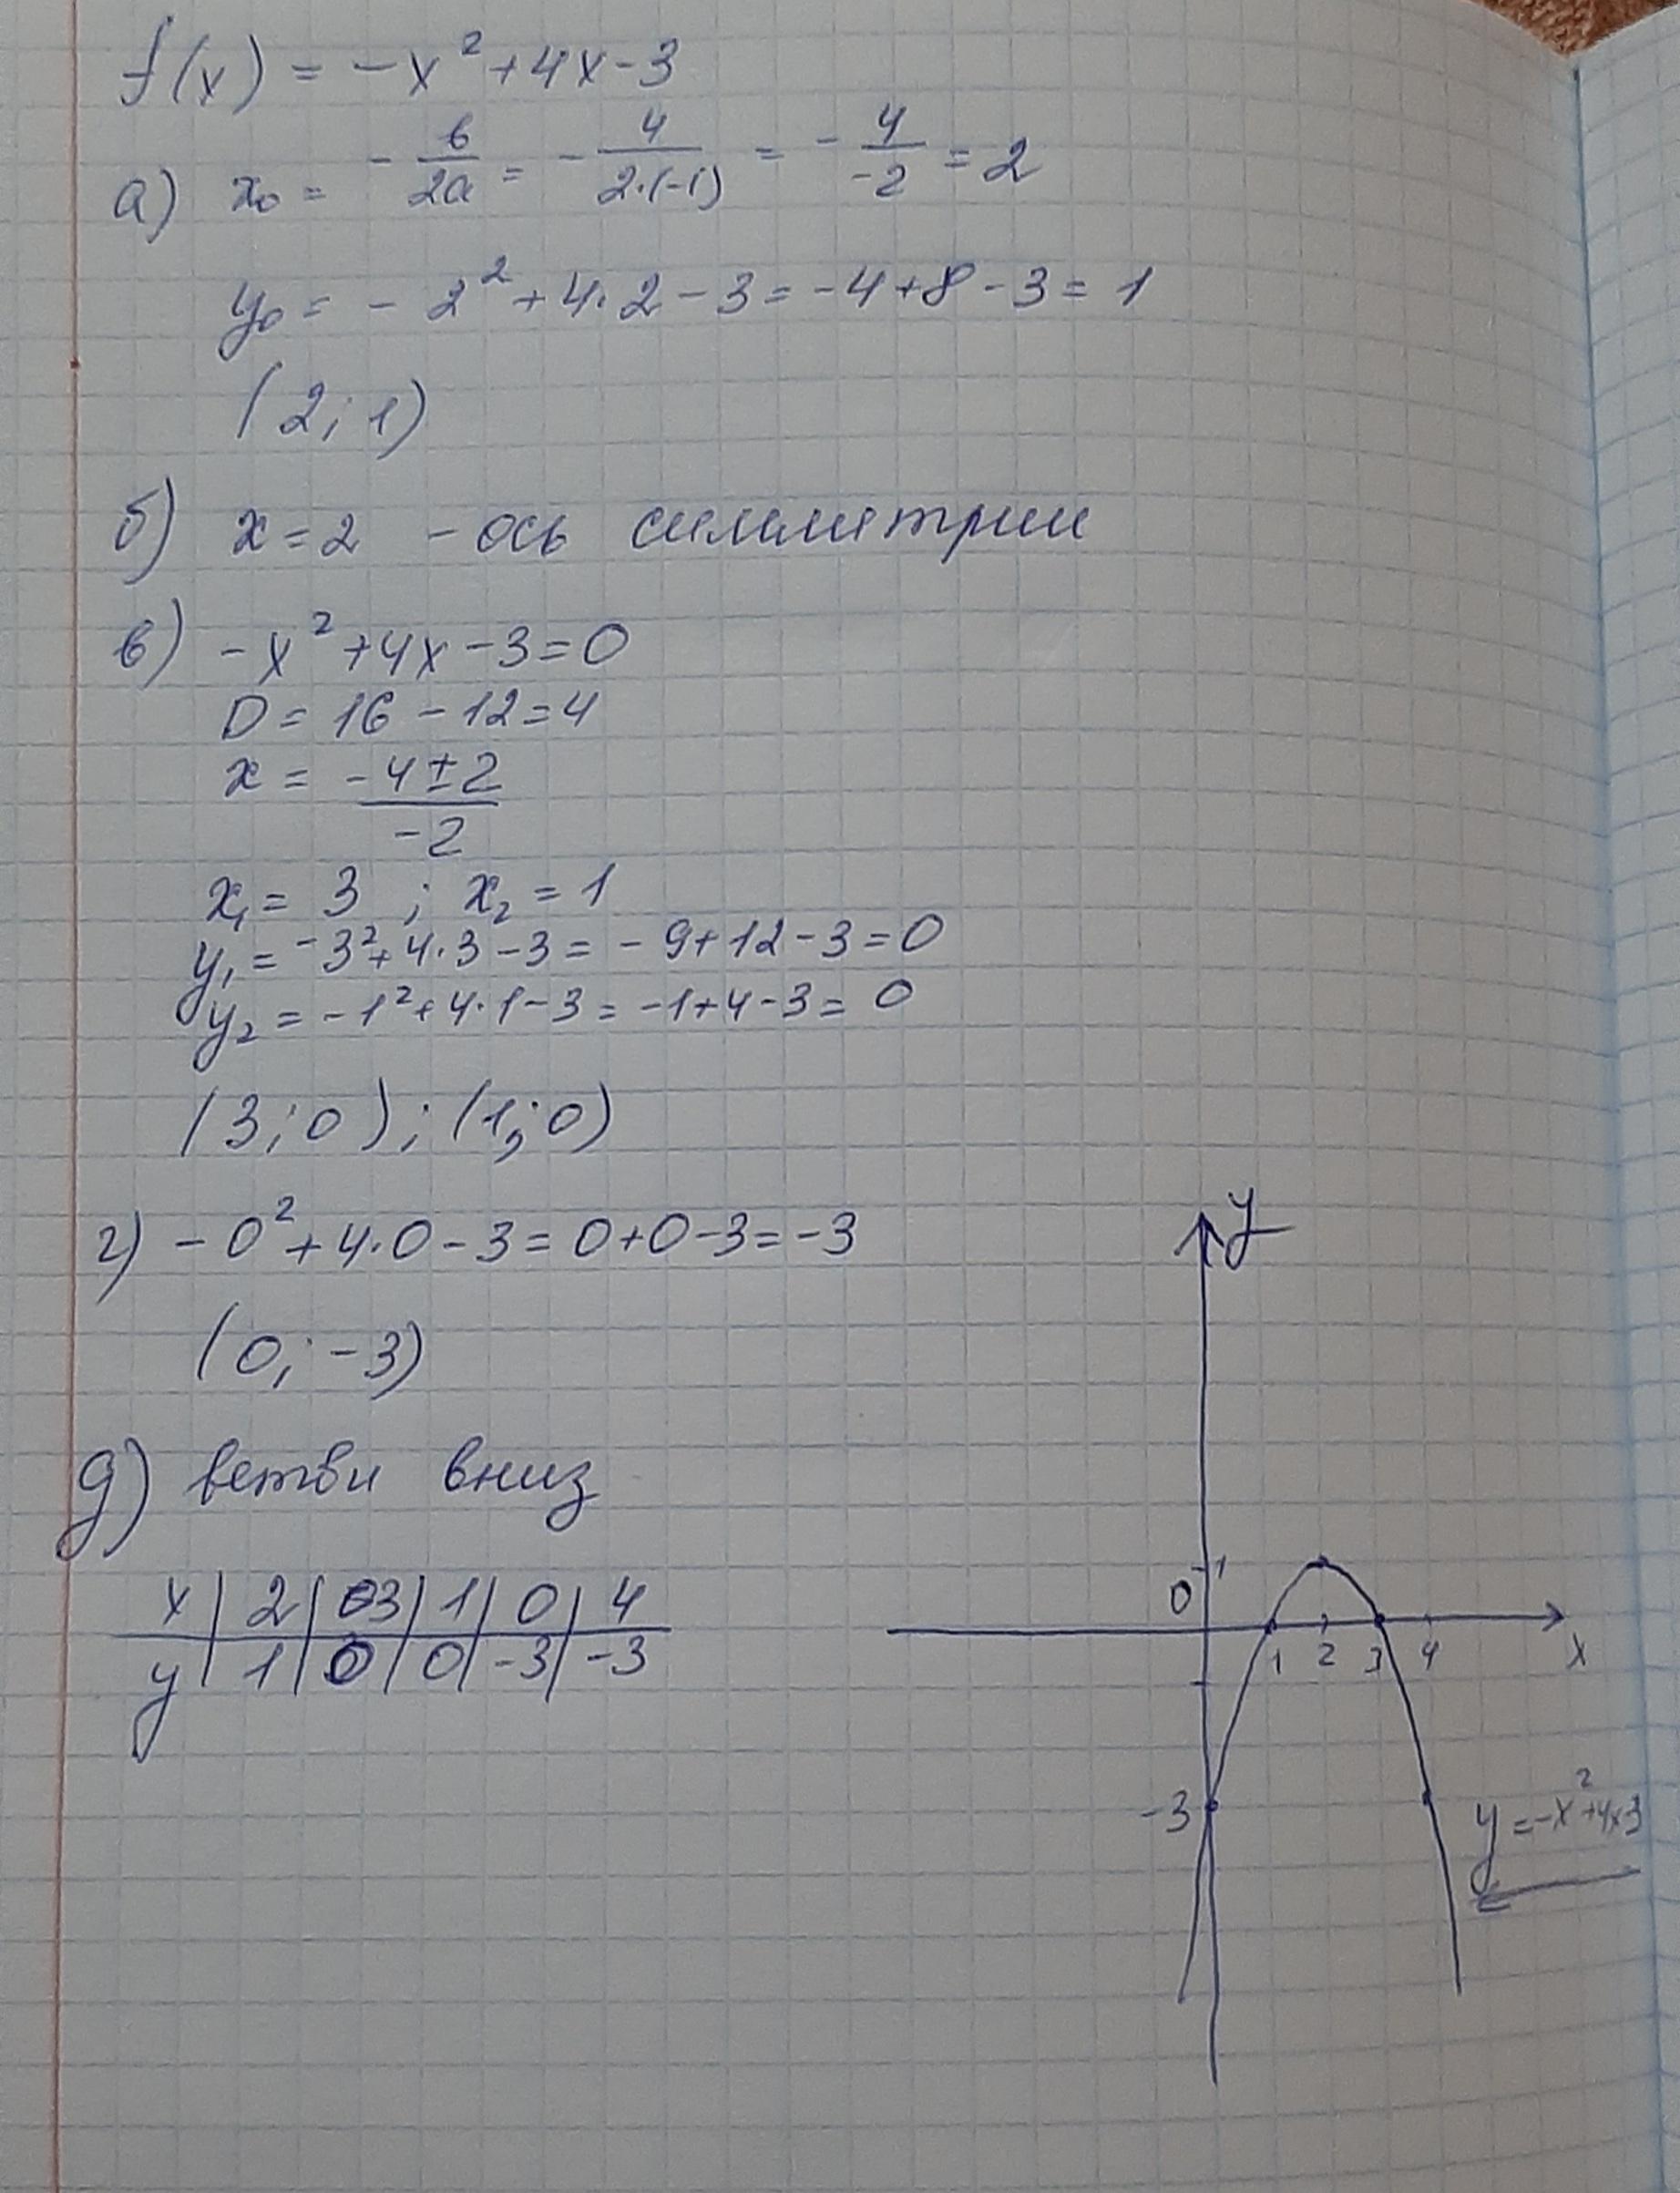 f(x) = -x² + 4x - 3
а) x₀ = - в/2а = - 4/2·(-1) = - 4/-2 = 2
y₀ = - 2² + 4·2 - 3 = -4 + 8 - 3 = 1
(2; 1)
б) x = 2 - ось симметрии
в) -x² + 4x - 3 = 0
D = 16 - 12 = 4
x = -4 ± 2 / -2
x₁ = 3 ; x₂ = 1
y₁ = -3² + 4·3 - 3 = -9 + 12 - 3 = 0
y₂ = -1² + 4·1 - 3 = -1 + 4 - 3 = 0
(3; 0); (1; 0)
г) - 0² + 4·0 - 3 = 0 + 0 - 3 = -3
(0; -3)
д) ветви вниз
x | 2 | 3 | 1 | 0 | 4
y | 1 | 0 | 0 | -3 | -3
y
1
0
1 2 3 4 x
-3
y = -x² + 4x - 3